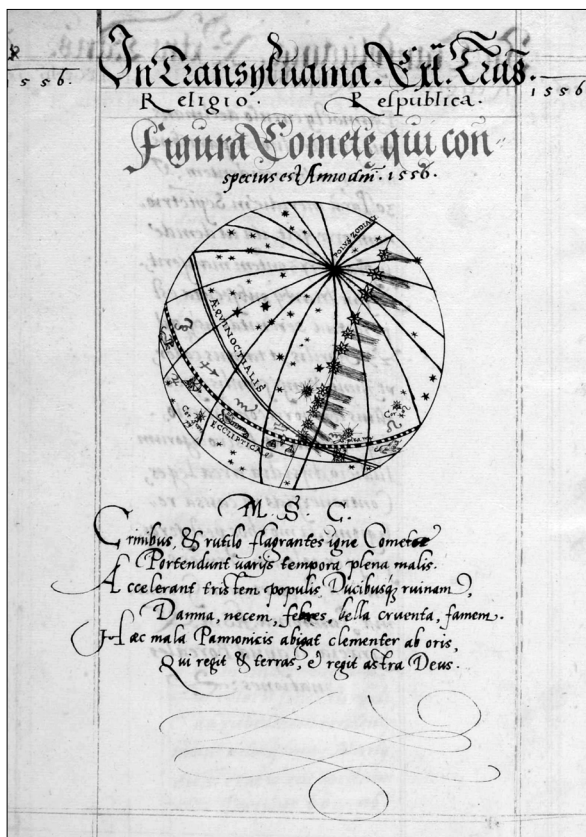 In Transyluania. Extra Tras.
1556. 1556
Religio. Respublica.
Figura Comete qui con
spectus est Anno dm̄. 1556.
POLVS ZODIACI
ÆQVINOCTIALIS
ECCLIPTICA
M. S. C.
Crinibus, & rutilo flagrantes igne Cometæ
Portendunt varijs tempora plena malis.
Accelerant tristem populis Ducibusq; ruinam,
Damna, necem, febres, bella cruenta, famem.
Hæc mala Pannonicis abigat clementer ab oris,
Qui regit & terras, et regit astra Deus.